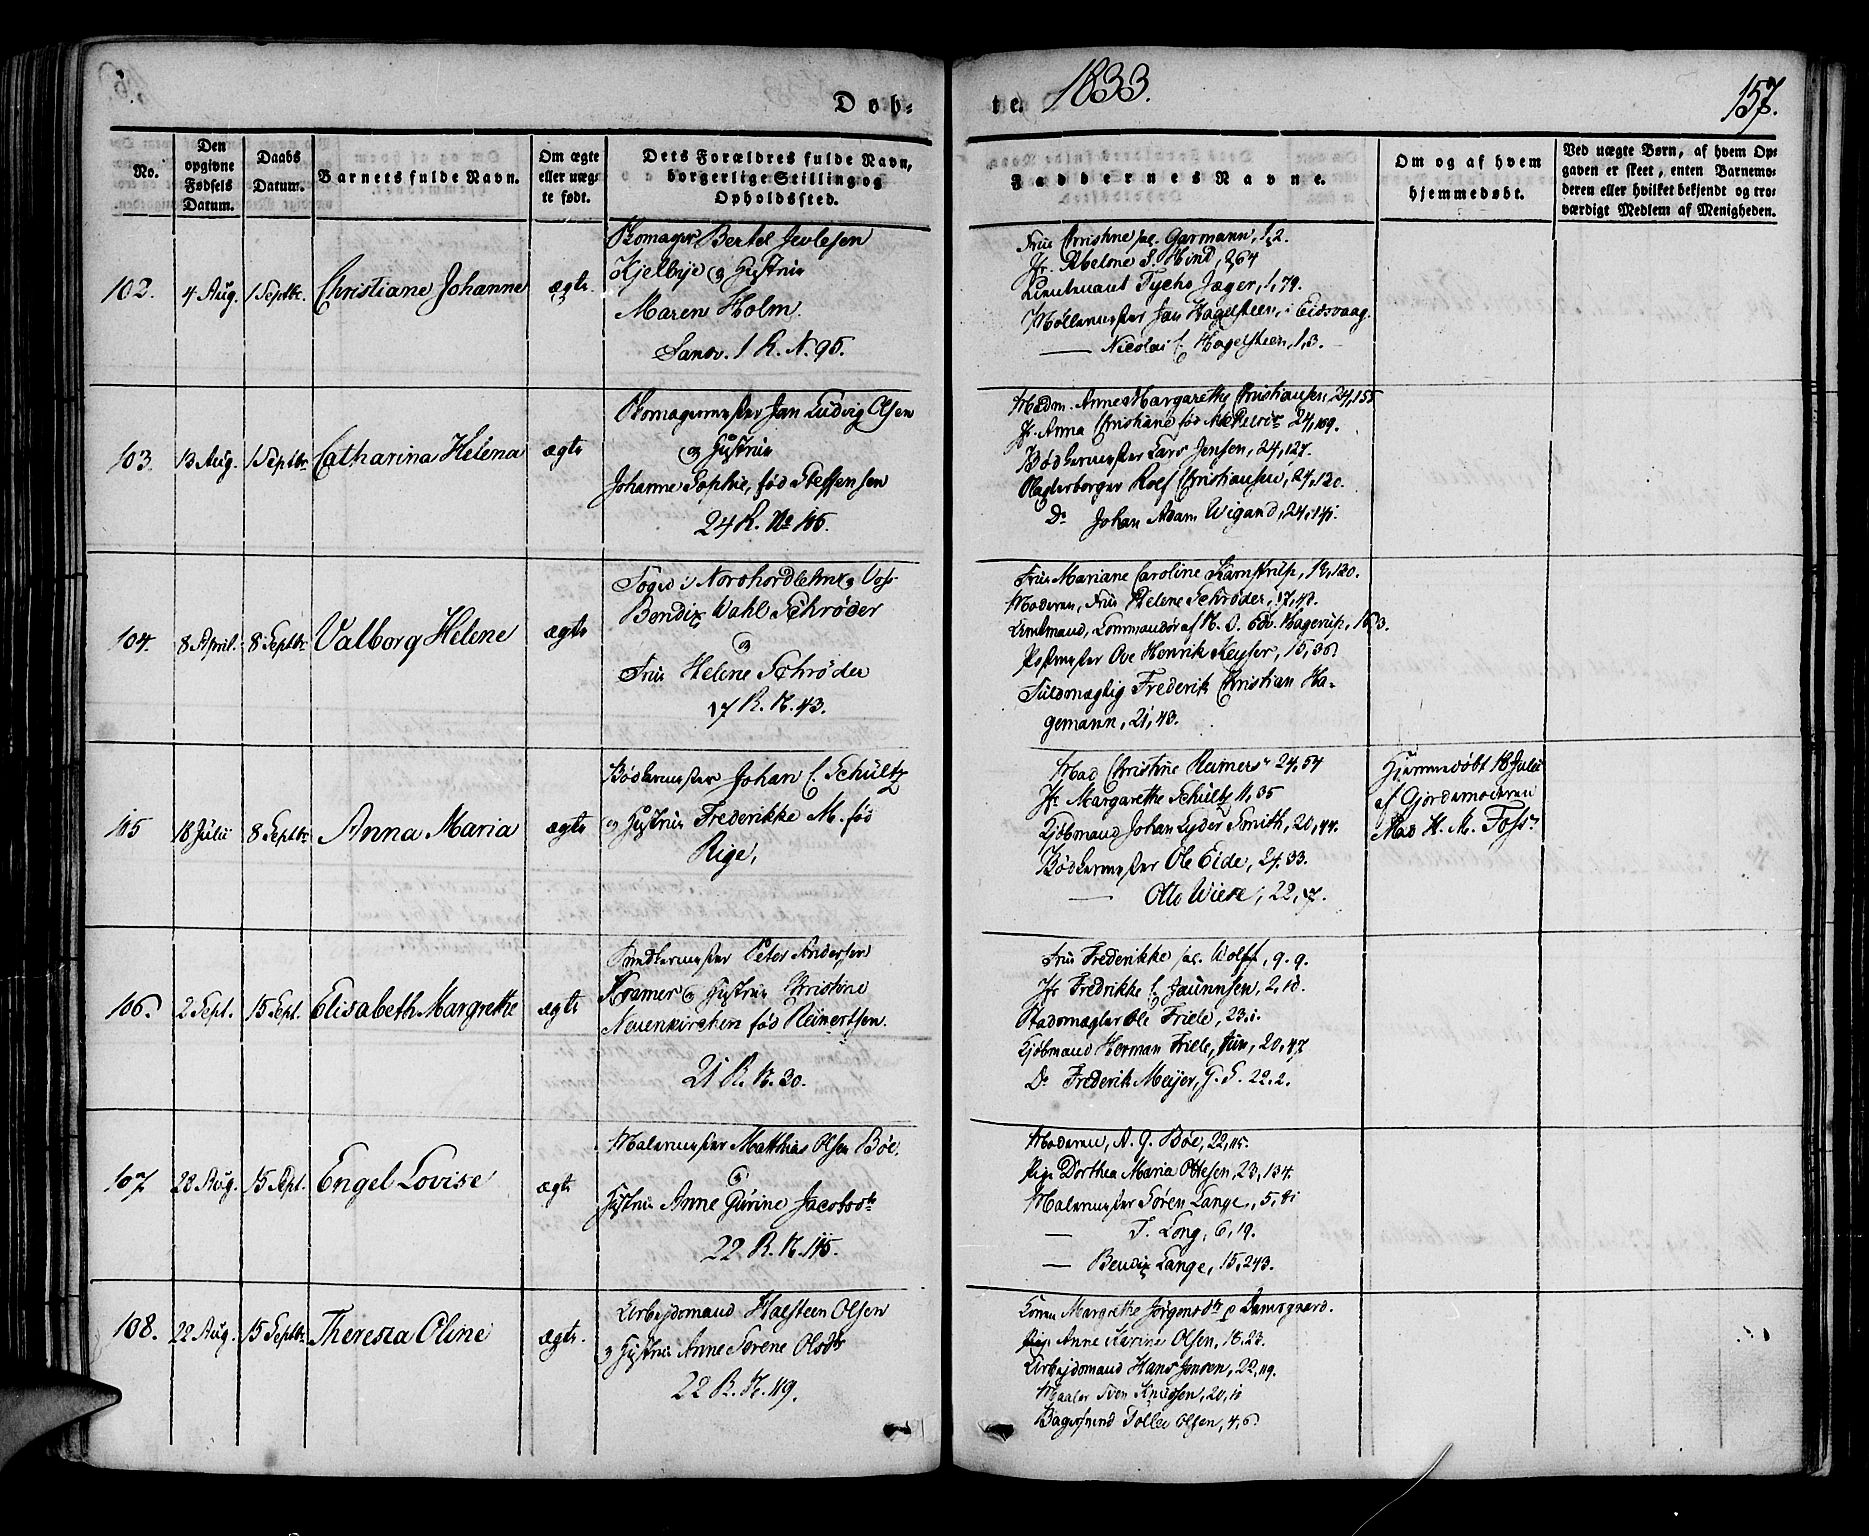 Døb-
te 1833.
157.
No.
Den opgivne Fødsels Datum.
Daabs Datum.
Barnets fulde Navn.
Om ægte eller uægte født.
Dets Forældres fulde Navn, borgerlige Stilling og Opholdssted.
Faddernes Navne.
Om og af hvem hjemmedøbt.
Ved uægte Børn, af hvem Opgaven er skeet, enten Barnemoderen eller hvilket bekjendt og troværdigt Medlem af Menigheden.
102. 4 Aug. 1 Septbr. Christiane Johanne ægte.
Skomager Bertel
og Hustrue
Maren Holm.
Sandv. 1 R. N. 95.
Frue Christine sal. Garmann, 1,2.
Jfr. Abelone S. Hind, 2,64
Lieutenant Tycho Jæger, 1,79.
Møllemester Jan Hagelsteen, i Eidsvaag.
— Nicolai C. Hagelsteen, 1,3.
103. 13 Aug. 1 Septbr. Catharina Helena ægte
Skomagermester Jan Ludvig Olsen
og Hustrue
Johanne Sophie, fød Steffensen
24 R. No 105.
Madm. Anne Margarethe Christiansen, 24,155
Jfr. Anna Christiane fød 24,109.
Bødkermester Lars Jensen, 24,127.
Slagterborger Roef Christiansen, 24,120.
Do Johan Adam Wigand, 24,141.
104. 8 April. 8 Septbr. Valborg Helene ægte
Foged i Nordhordlehn og Voss
Bendix Wahl Schrøder
og
Frue Helene Schrøder
17 R. N. 43.
Frue Mariane Caroline Kamstrup, 19,120.
Moderen, Frue Helene Schrøder, 17,43.
Amtmand, Commandør af N. O. Edv. Hagerup,
Postmester Ove Henrik Keyser, 15,36.
Fuldmægtig Frederik Christian Ha-
gemann, 21,43.
105 18 Julii 8 Septbr. Anna Maria ægte
Bødkermester Johan C. Schultz
og Hustrue Frederikke M. fød
Rige,
Mad Christine Reimers 24,54
Jfr. Margarethe Schultz 11,35
Kjøbmand Johan Lyder Smith, 20,44.
Bødkermester Ole Eide, 24,33.
— Otto Wiese, 22,17.
Hjemmedøbt 18 Julii
af Gjordemoderen
Mad H. M. Foss.
106. 2 Sept. 15 Sept. Elisabeth Margrethe ægte
Peter Andersen
Kramer og Hustrue Christine
Neuenkirchen fød Reinertsen.
21 R. N. 30.
Frue Frederikke sal. Wolff, 9,9.
Jfr. Fredrikke C. 2,18.
Stadsmægler Ole Friele, 23,1.
Kjøbmand Herman Friele, jun, 20,47
Do Frederik Meijer, G. S. 22,2.
107 22 Aug. 15 Sept. Engel Lovise ægte
Malermester Matthias Olsen Bøe.
og
Hustrue Anne Gurine Jacobsdtr
22 R. N. 115.
Moderen, A. G. Bøe, 22,115.
Pige Dorthea Maria Ottesen, 23,134.
Malermester Søren Lange, 5,41
— T. Long, 6,19.
— Bendix Lange, 15,243.
108. 22 Aug. 15 Septbr. Theresia Oline ægte.
Arbejdsmand Halsteen Olsen
og Hustrue Anne Serene Olsdtr
22 R. N. 119.
Konen Margrethe Jørgensdtr p Damsgaard.
Pige Anne Karine Olsen, 18,23.
Arbejdsmand Hans Jensen, 22,119.
Maaler Sven Knudsen, 20,11
Bagersvend Tollev Olsen, 4,6